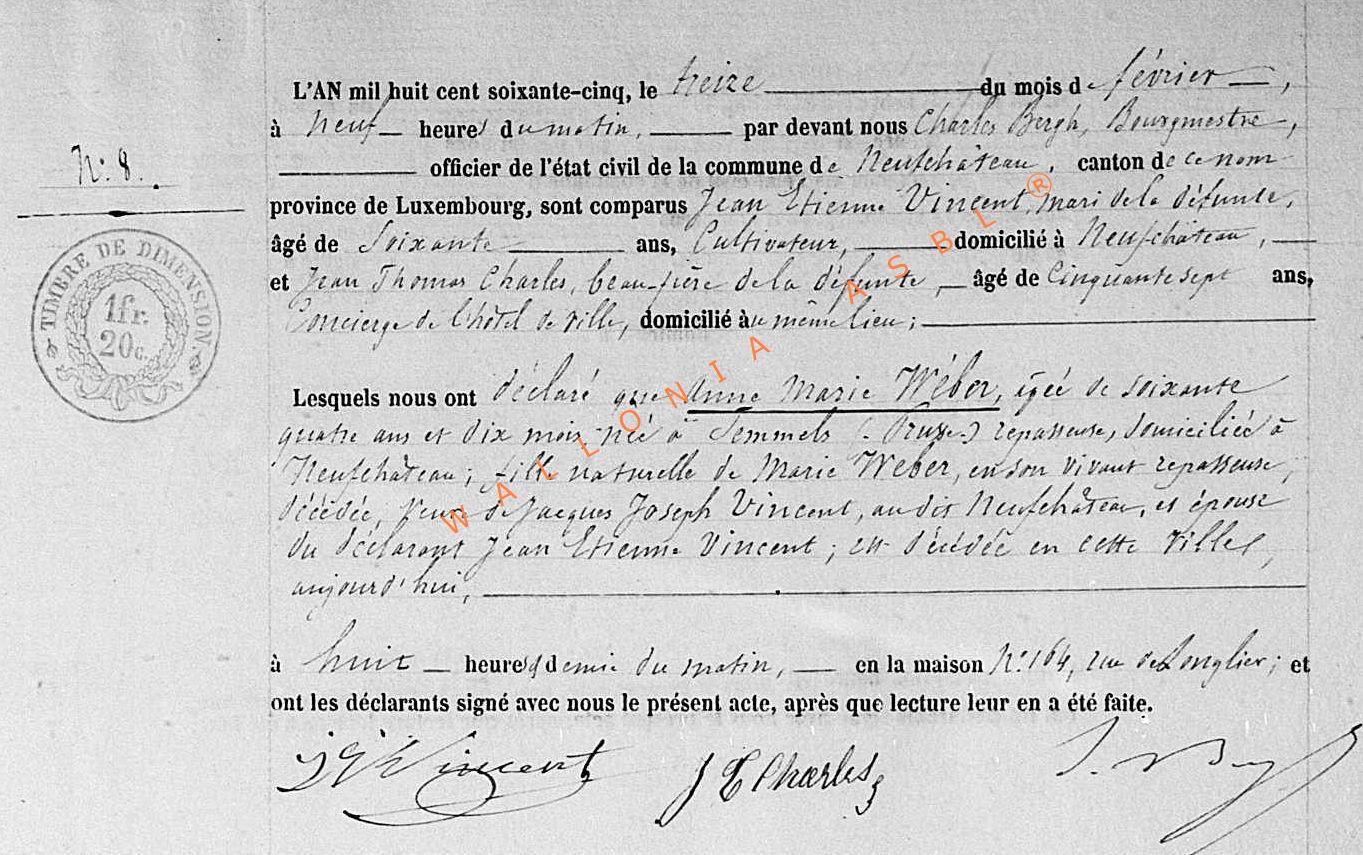 L'AN mil huit cent soixante-cinq, le treize du mois de février,
à Neuf heures du matin, par devant nous Charles Bergh, Bourgmestre,
officier de l'état civil de la commune de Neufchâteau, canton de ce nom
N.º 8.
province de Luxembourg, sont comparus Jean Etienne Vincent, mari de la défunte,
âgé de Soixante ans, Cultivateur, domicilié à Neufchâteau,
et Jean Thomas Charles, beau-frère de la défunte, âgé de Cinquante sept ans,
Concierge de l'hôtel de ville, domicilié au même lieu;
TIMBRE DE DIMENSION
1fr.
20c.
Lesquels nous ont déclaré que Anne Marie Wéber, âgée de soixante
quatre ans et dix mois, née à Temmels (Prusse) repasseuse, domiciliée à
Neufchâteau; fille naturelle de Marie Weber, en son vivant repasseuse,
décédée, veuve de Jacques Joseph Vincent, audit Neufchâteau, et épouse
du déclarant Jean Etienne Vincent; est décédée en cette Ville,
aujourd'hui,
à huit heures & demie du matin, en la maison N.º 164, rue de Longlier; et
ont les déclarants signé avec nous le présent acte, après que lecture leur en a été faite.
J E Vincent J T Charles
WALLONIA ASBL ®